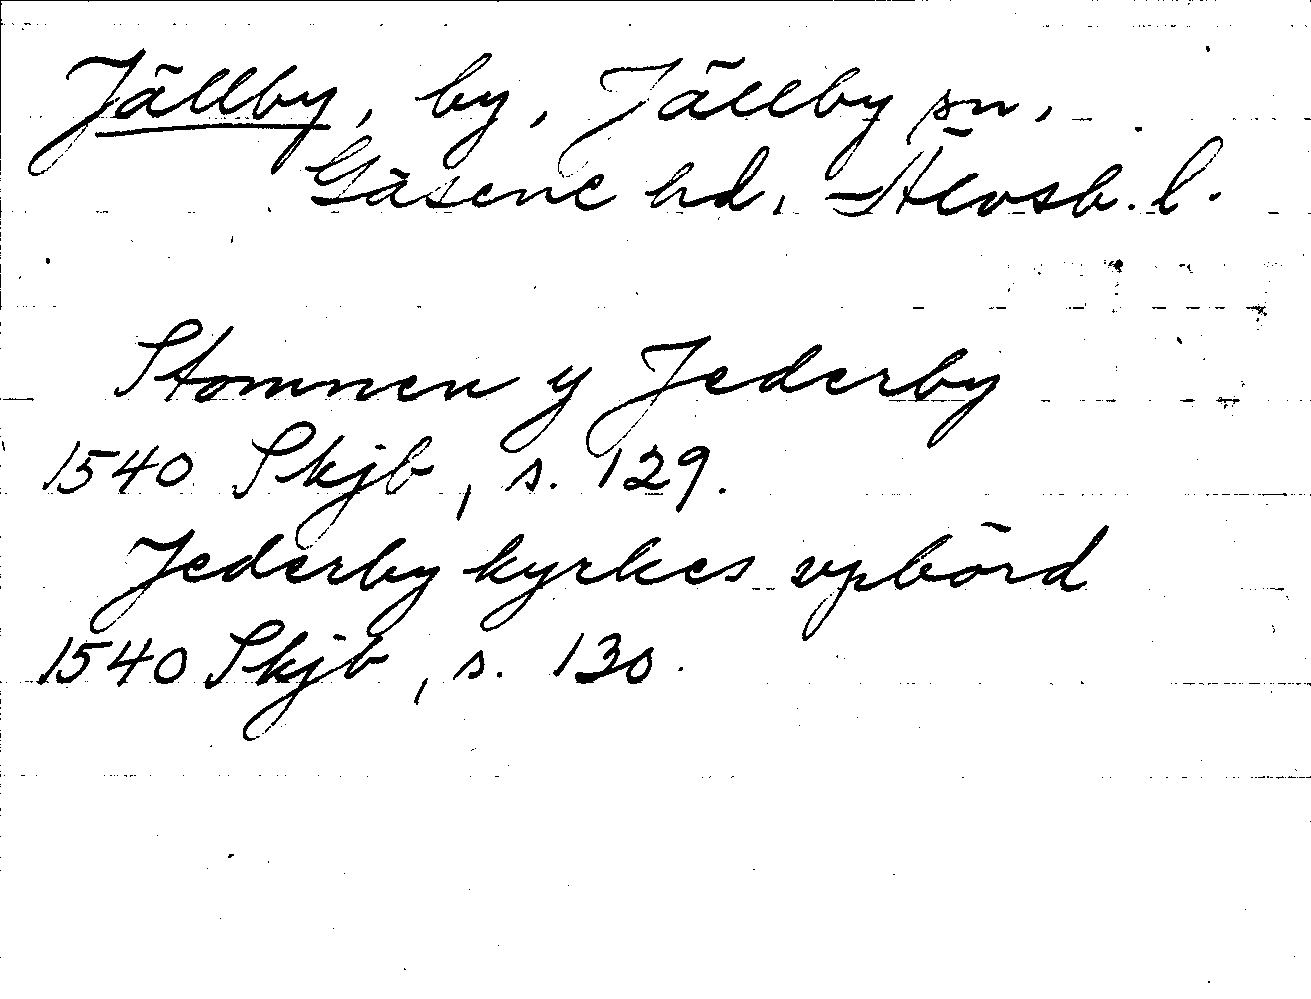 Jällby, by, Jällby sn,
Gäsene hd, Älvsb. l.
Stommen y Jederby
1540 Skjb, s. 129.
Jederby kyrkes vpbörd
1540 Skjb, s. 130.